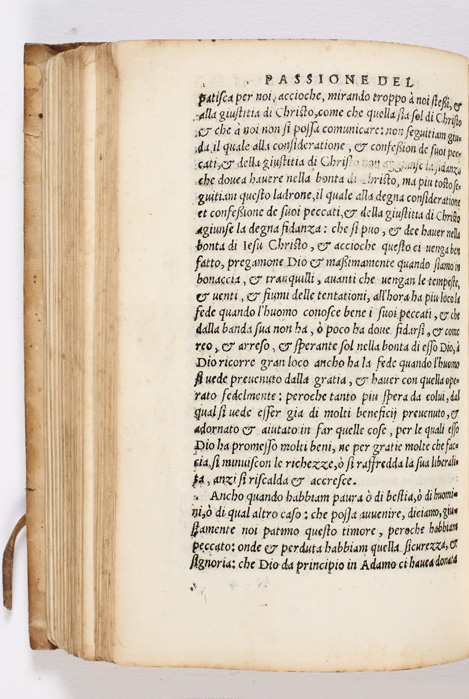 PASSIONE DEL
patisca per noi, accioche, mirando troppo à noi steßi, &
alla giustitia di Christo, come che quella sia sol di Christo
& che à noi non si possa comunicare: non seguitiam giu-
da, il quale alla consideratione, & confeßion de suoi pec-
cati, & della giustitia di Christo non aggiunse la fidanza
che douea hauere nella bonta di Christo, ma piu tosto se-
guitiam questo ladrone, il quale alla degna consideratione
et confeßione de suoi peccati, & della giustitia di Christo
agiunse la degna fidanza: che si puo, & dee hauer nella
bonta di Iesu Christo, & accioche questo ci uenga ben
fatto, pregamone Dio & maßimamente quando siamo in
bonaccia, & tranquilli, auanti che uengan le tempeste,
& uenti, & fiumi delle tentationi, all'hora ha piu loco le
fede quando l'huomo conosce bene i suoi peccati, & che
dalla banda sua non ha, ò poco ha doue fidarsi, & come
reo, & arreso, & sperante sol nella bonta di esso Dio, à
Dio ricorre gran loco ancho ha la fede quando l'huomo
si uede preuenuto dalla gratia, & hauer con quella ope-
rato fedelmente: peroche tanto piu spera da colui, dal
qual si uede esser gia di molti beneficij preuenuto, &
adornato & aiutato in far quelle cose, per le quali esso
Dio ha promesso molti beni, ne per gratie molte che fac-
cia, si minuiscon le richezze, ò si raffredda la sua liberali-
ta, anzi si riscalda & accresce.
Ancho quando habbiam paura ò di bestia, ò di huomi-
ni, ò di qual altro caso: che possa auuenire, diciamo, giu-
stamente noi patimo questo timore, peroche habbiam
peccato: onde & perduta habbiam quella sicurezza, &
signoria: che Dio da principio in Adamo ci hauea donata